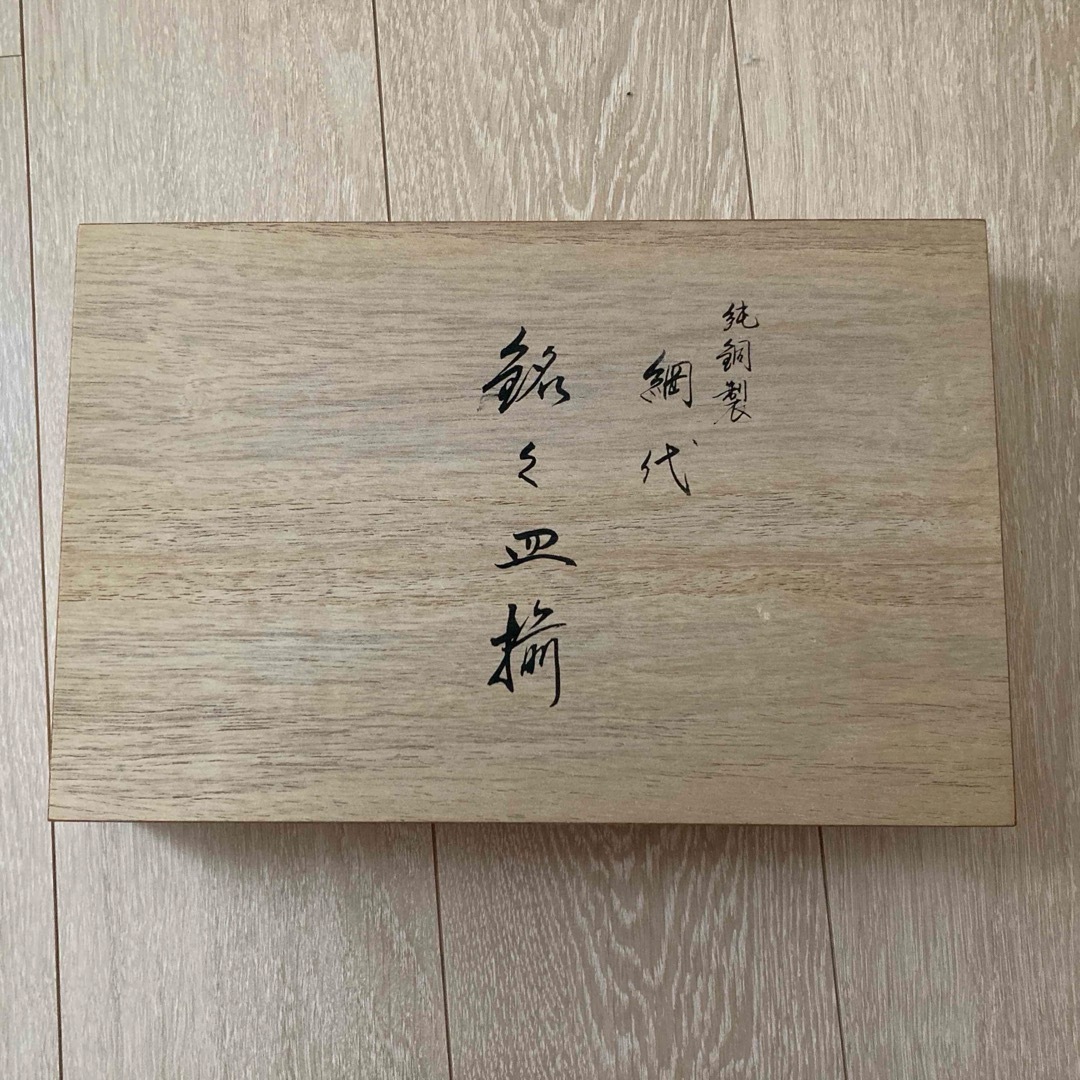 純銅製
網代
銘々皿揃